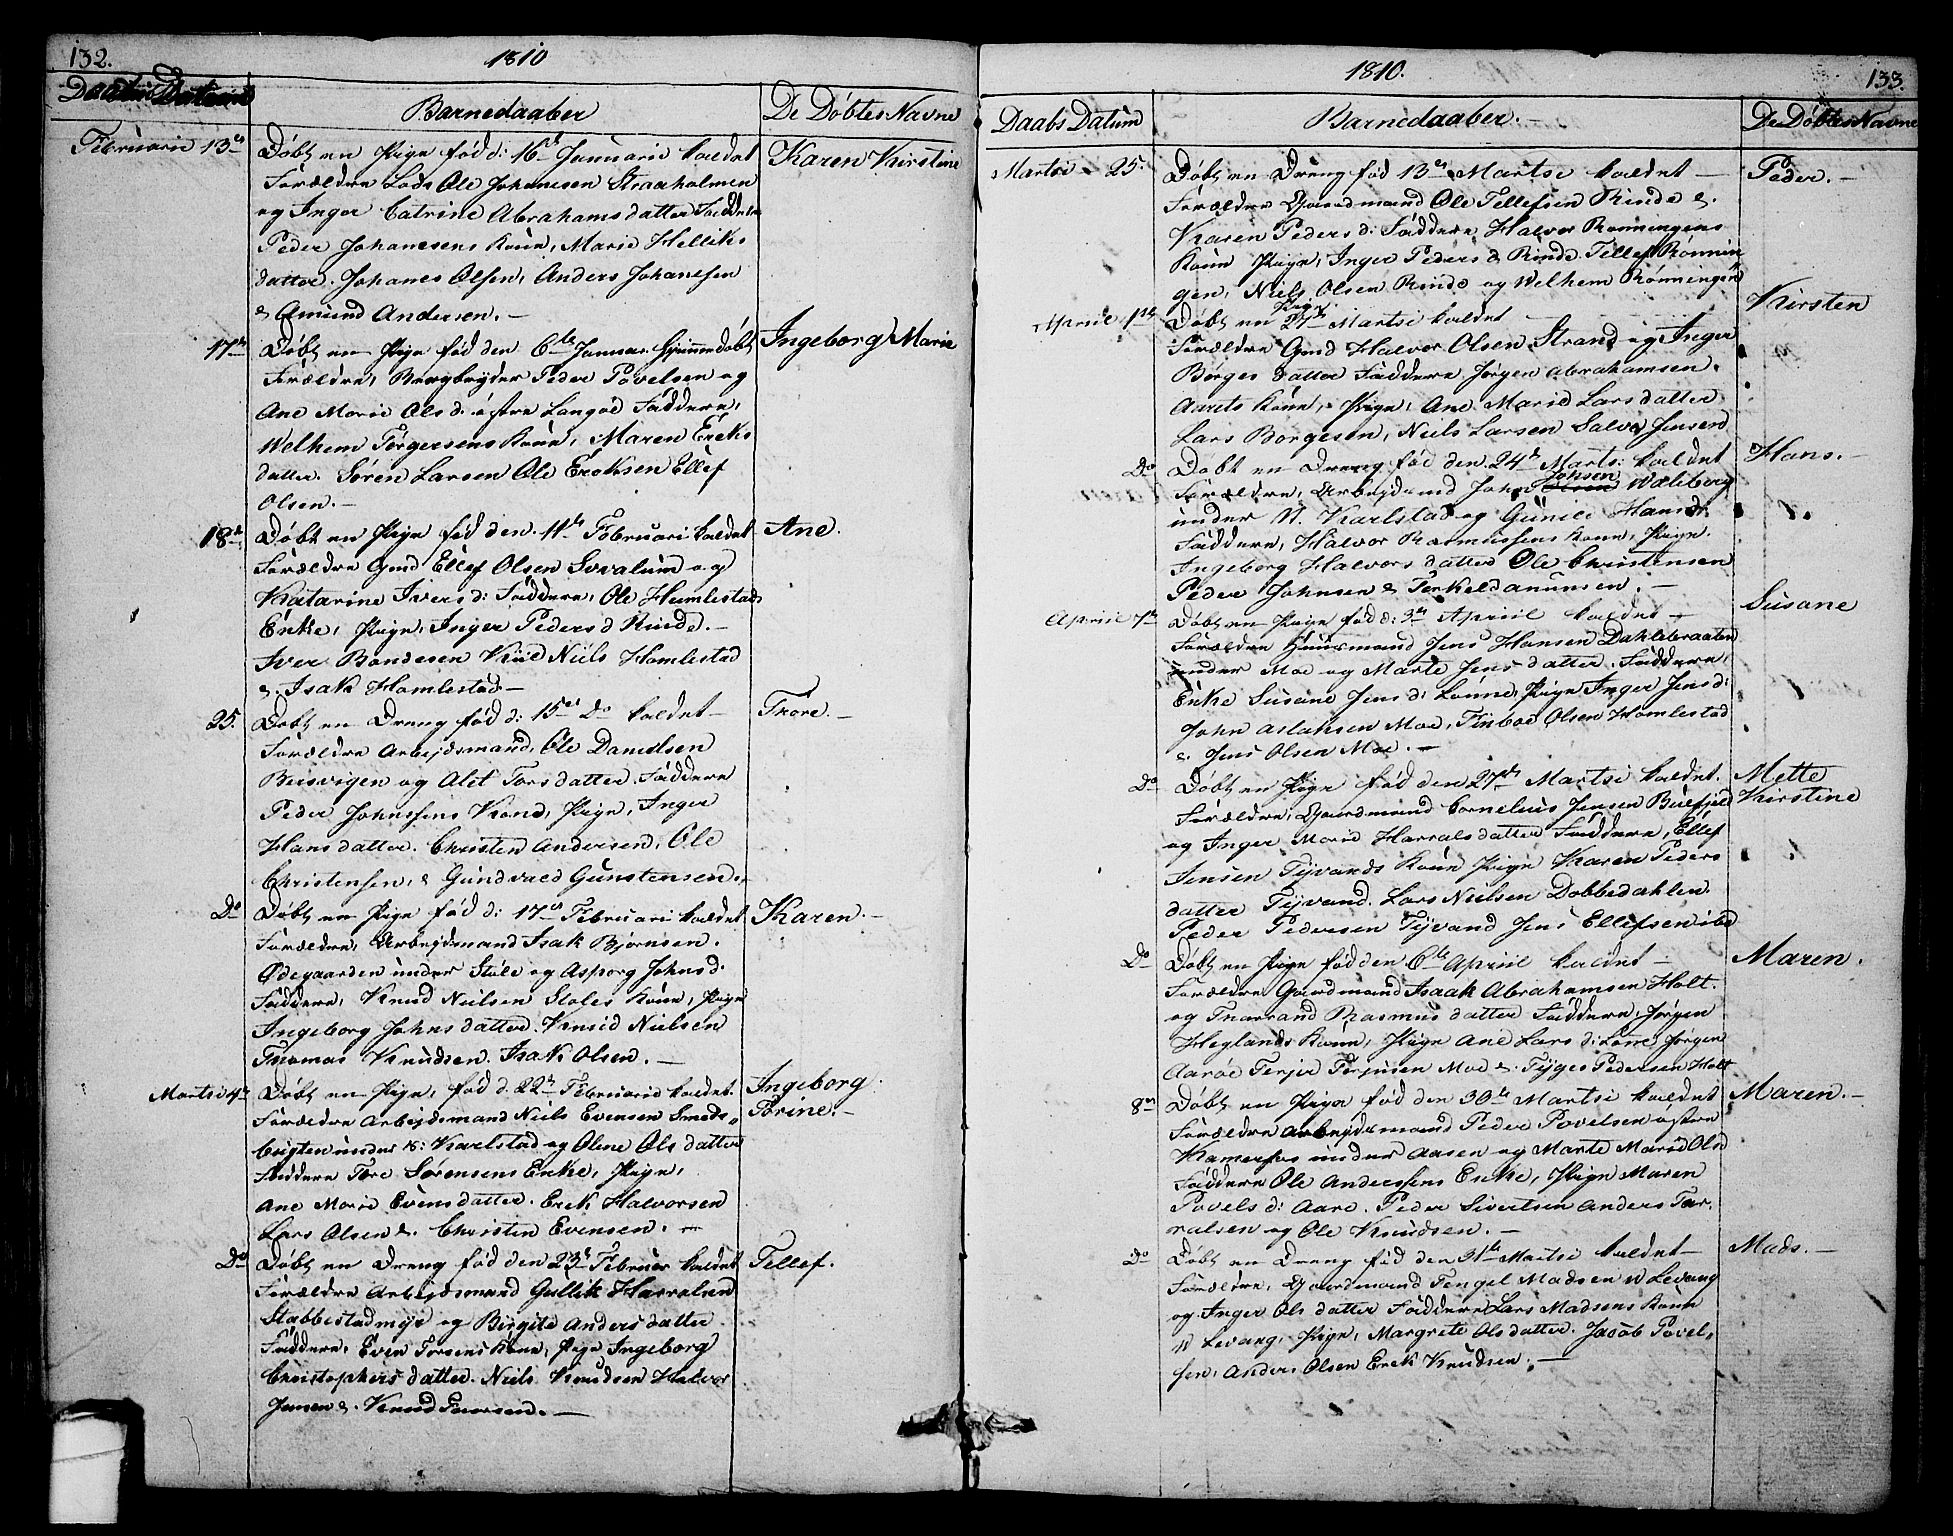 132.
1810
Daabs Datum
Barnedaaber
De Døbtes Navne
Februarie 13de
Døbt en Pige fød d: 16de Januarii kaldet
Karen Kirstine
Forældre Lods Ole Johanesen Straaholmen
og Inger Catrine Abrahamsdatter Faddere
Peder Johanesens Kone, Marie Helliks
datter. Johanes Olsen, Anders Johanesen
& Amund Andersen. –
17de
Døbt en Pige fød den 6te Januar. Hjemmedøbt
Ingeborg Marie
Forældre, Bergbryder Peder Povelsen og
Ane Marie Ols d. østre Langøe Faddere,
Welhem Torgersens Kone, Maren Erichs
datter. Søren Larsen Ole Erichsen Ellef
Olsen. –
18de
Døbt en Pige fød den 11te Februari kaldet
Ane.
Forældre Gmd Ellef Olsen Sovalum og
Katarine Ivers d: Faddere, Ole Humlestads
Enke, Pige, Inger Peders d Rinde. –
Iver Bondesen Kiil Niils Homlestad
& Isak Homlestad –
25.
Døbt en Dreng fød d: 15de Do kaldet –
Thore. –
Forældre Arbejdsmand, Ole Danielsen
Beisvigen og Alet Torsdatter. Faddere
Peder Johnssens Kone, Pige, Inger
Hansdatter. Christen Andersen, Ole
Christensen, & Gundvald Gunstensen. –
Do
Døbt en Pige fød d: 17de Februari kaldet
Karen. –
Forældre, Arbejdsmand Isak Bjørnsen.
Ødegaarden under Støle og Asporg Johns d.
Faddere, Knud Nielsen Støles Kone, Pige
Ingeborg Johnsdatter. Knud Nielsen
Thomas Knudsen. Isak Olsen. –
Martii 4de
Døbt en Pige, fød d. 22de Februarii kaldet.
Ingeborg
Torine. –
Forældre Arbejdsmand Niels Evensen Smeds-
bugten under N: Karlstad og Olene Olsdatter
Faddere Tore Sørensens Enke, Pige,
Ane Marie Evensdatter. Erik Halvorsen
Lars Olsen &. Christen Evensen. –
Do
Døbt en Dreng fød den 23de Februar kaldet
Tellef.
Forældre Arbejdsmand Gullik Harralsen
Stabbestadmyr og Birgite Andersdatter
Faddere, Even Torsens Kone, Pige Ingeborg
Christophersdatter. Niels Knudsen Halvor
Jensen & Knud Thorsen. –
1810.
133.
Daabs Datum
Barnedaaber. –
De Døbtes Navne
Martii 25.
Døbt en Dreng fød 13de Martii kaldet –
Peder. –
Forældre Gaardmand Ole Tellefsen Rinde &.
Karen Peders d: Faddere Halvor Rønningens
Kone Pige, Inger Peders d Rinde. Tellef Rønnin-
gen, Niels Olsen Rinde og Welhem Rønningen
Apriil 1ste
Døbt en Pige 27de Martii kaldet –
Kirsten
Forældre Gmd Halvor Olsen Strand og Inger
Børgesdatter Faddere Jørgen Abrahamsen.
Aarøts Kone, Pige, Ane Marie Larsdatter.
Lars Børgesen, Niels Larsen Salve Jensen
Do
Døbt en Dreng fød den 24de Marts: kaldet
Hans. –
Forældre, Arbejdsmd John Johsen Waleborg
under N. Karlstad og Gunild Hansd.
Faddere, Halvor Rasmussens Kone, Pige.
Ingeborg Halvorsdatter Ole Christensen
Peder Johnsen & Terkel Danunsen. –
Apriil 7de
Døbt en Pige fød d: 3de Apriil kaldet –
Susane
Forældre Huusmand Jens Hansen Dahlebraaten
under Moe og Marte Jensdatter. Faddere,
Enke Susane Jens d: Lønne, Pige Inger Jensd:
John Aslaksen Moe, Finboe Olsen Homlestad
&. Jens Olsen Moe. –
Do
Døbt en Pige fød den 27de Martii kaldet.
Mette
Kirstine
Forældre, Gaardmand Cornelius Jensen Buefjeld
og Inger Marie Harralsdatter Faddere, Ellef
Jensen Tyvands Kone Pige Karen Peders
datter Tyvand. Lars Nielsen Dobbedahlen
Peder Pedersen Tyvand Jens Ellefsen ibd
Do
Døbt en Pige fød den 6te Apriil kaldet –
Maren.
Forældre Gaardmand Isaak Abrahamsen Holt.
og Tharrand Rasmusdatter Faddere, Jørgen
Heglands Kone, Pige Ane Lars d: Lone, Jørgen
Aarøe Terjer Terjusen Moe &. Tyges Pedersen Holt
8de
Døbt en Pige fød den 30te Martii kaldet
Maren. –
Forældre Arbejdsmand Peder Povelsen østre
Kamerfos under Aasen og Marte Marie Olsd
Faddere Ole Anderssens Enke, Pige Maren
Povels d: Aarø. Peder Sivertsen Anders Tar-
ralsen og Ole Knudsen. –
Do
Døbt en Dreng fød den 31te Martii kaldet –
Mads. –
Forældre, Gaardmand Tengel Madsen N Levang
og Inger Olsdatter Faddere Lars Madsens Kone
N Levang, Pige, Margrete Olsdatter. Jacob Povel-
sen, Anders Olsen Erik Knudsen. –